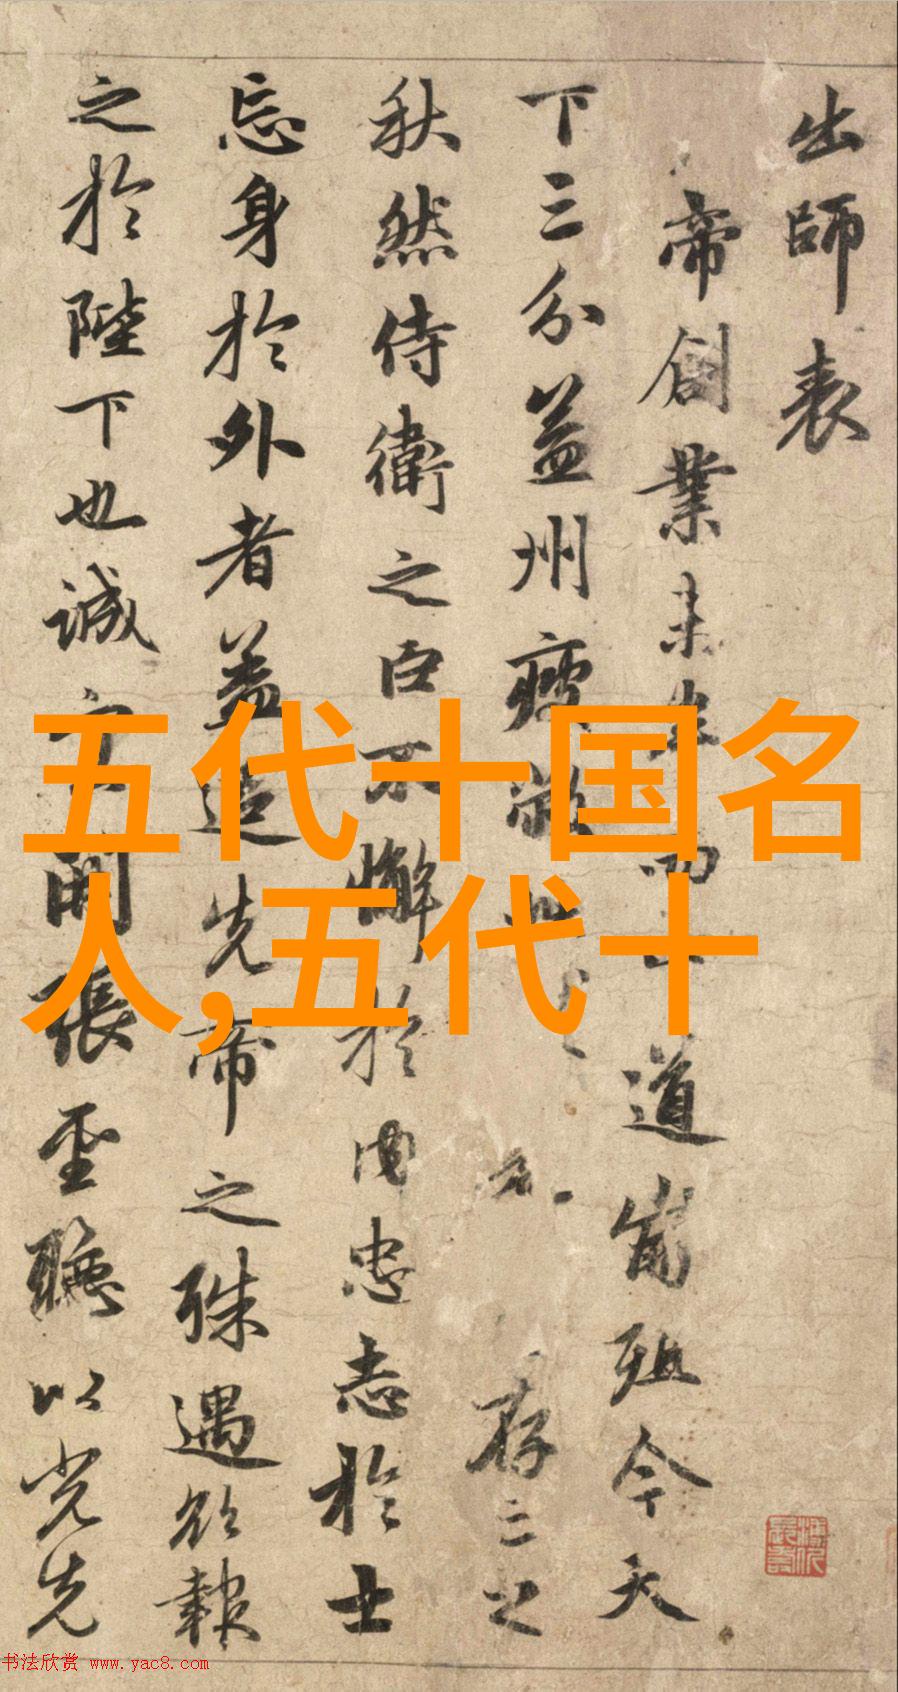 出師表
帝創業未半而道崩殂今天
下三分益州疲敝存亡之
秋然侍衛之臣不懈於內忠志於士
忘身於外者蓋追先帝之殊遇欲報
之於陛下也誠宜開張聖聽以光先
五代十国名
人,五代十
书法欣赏 www.yac8.com